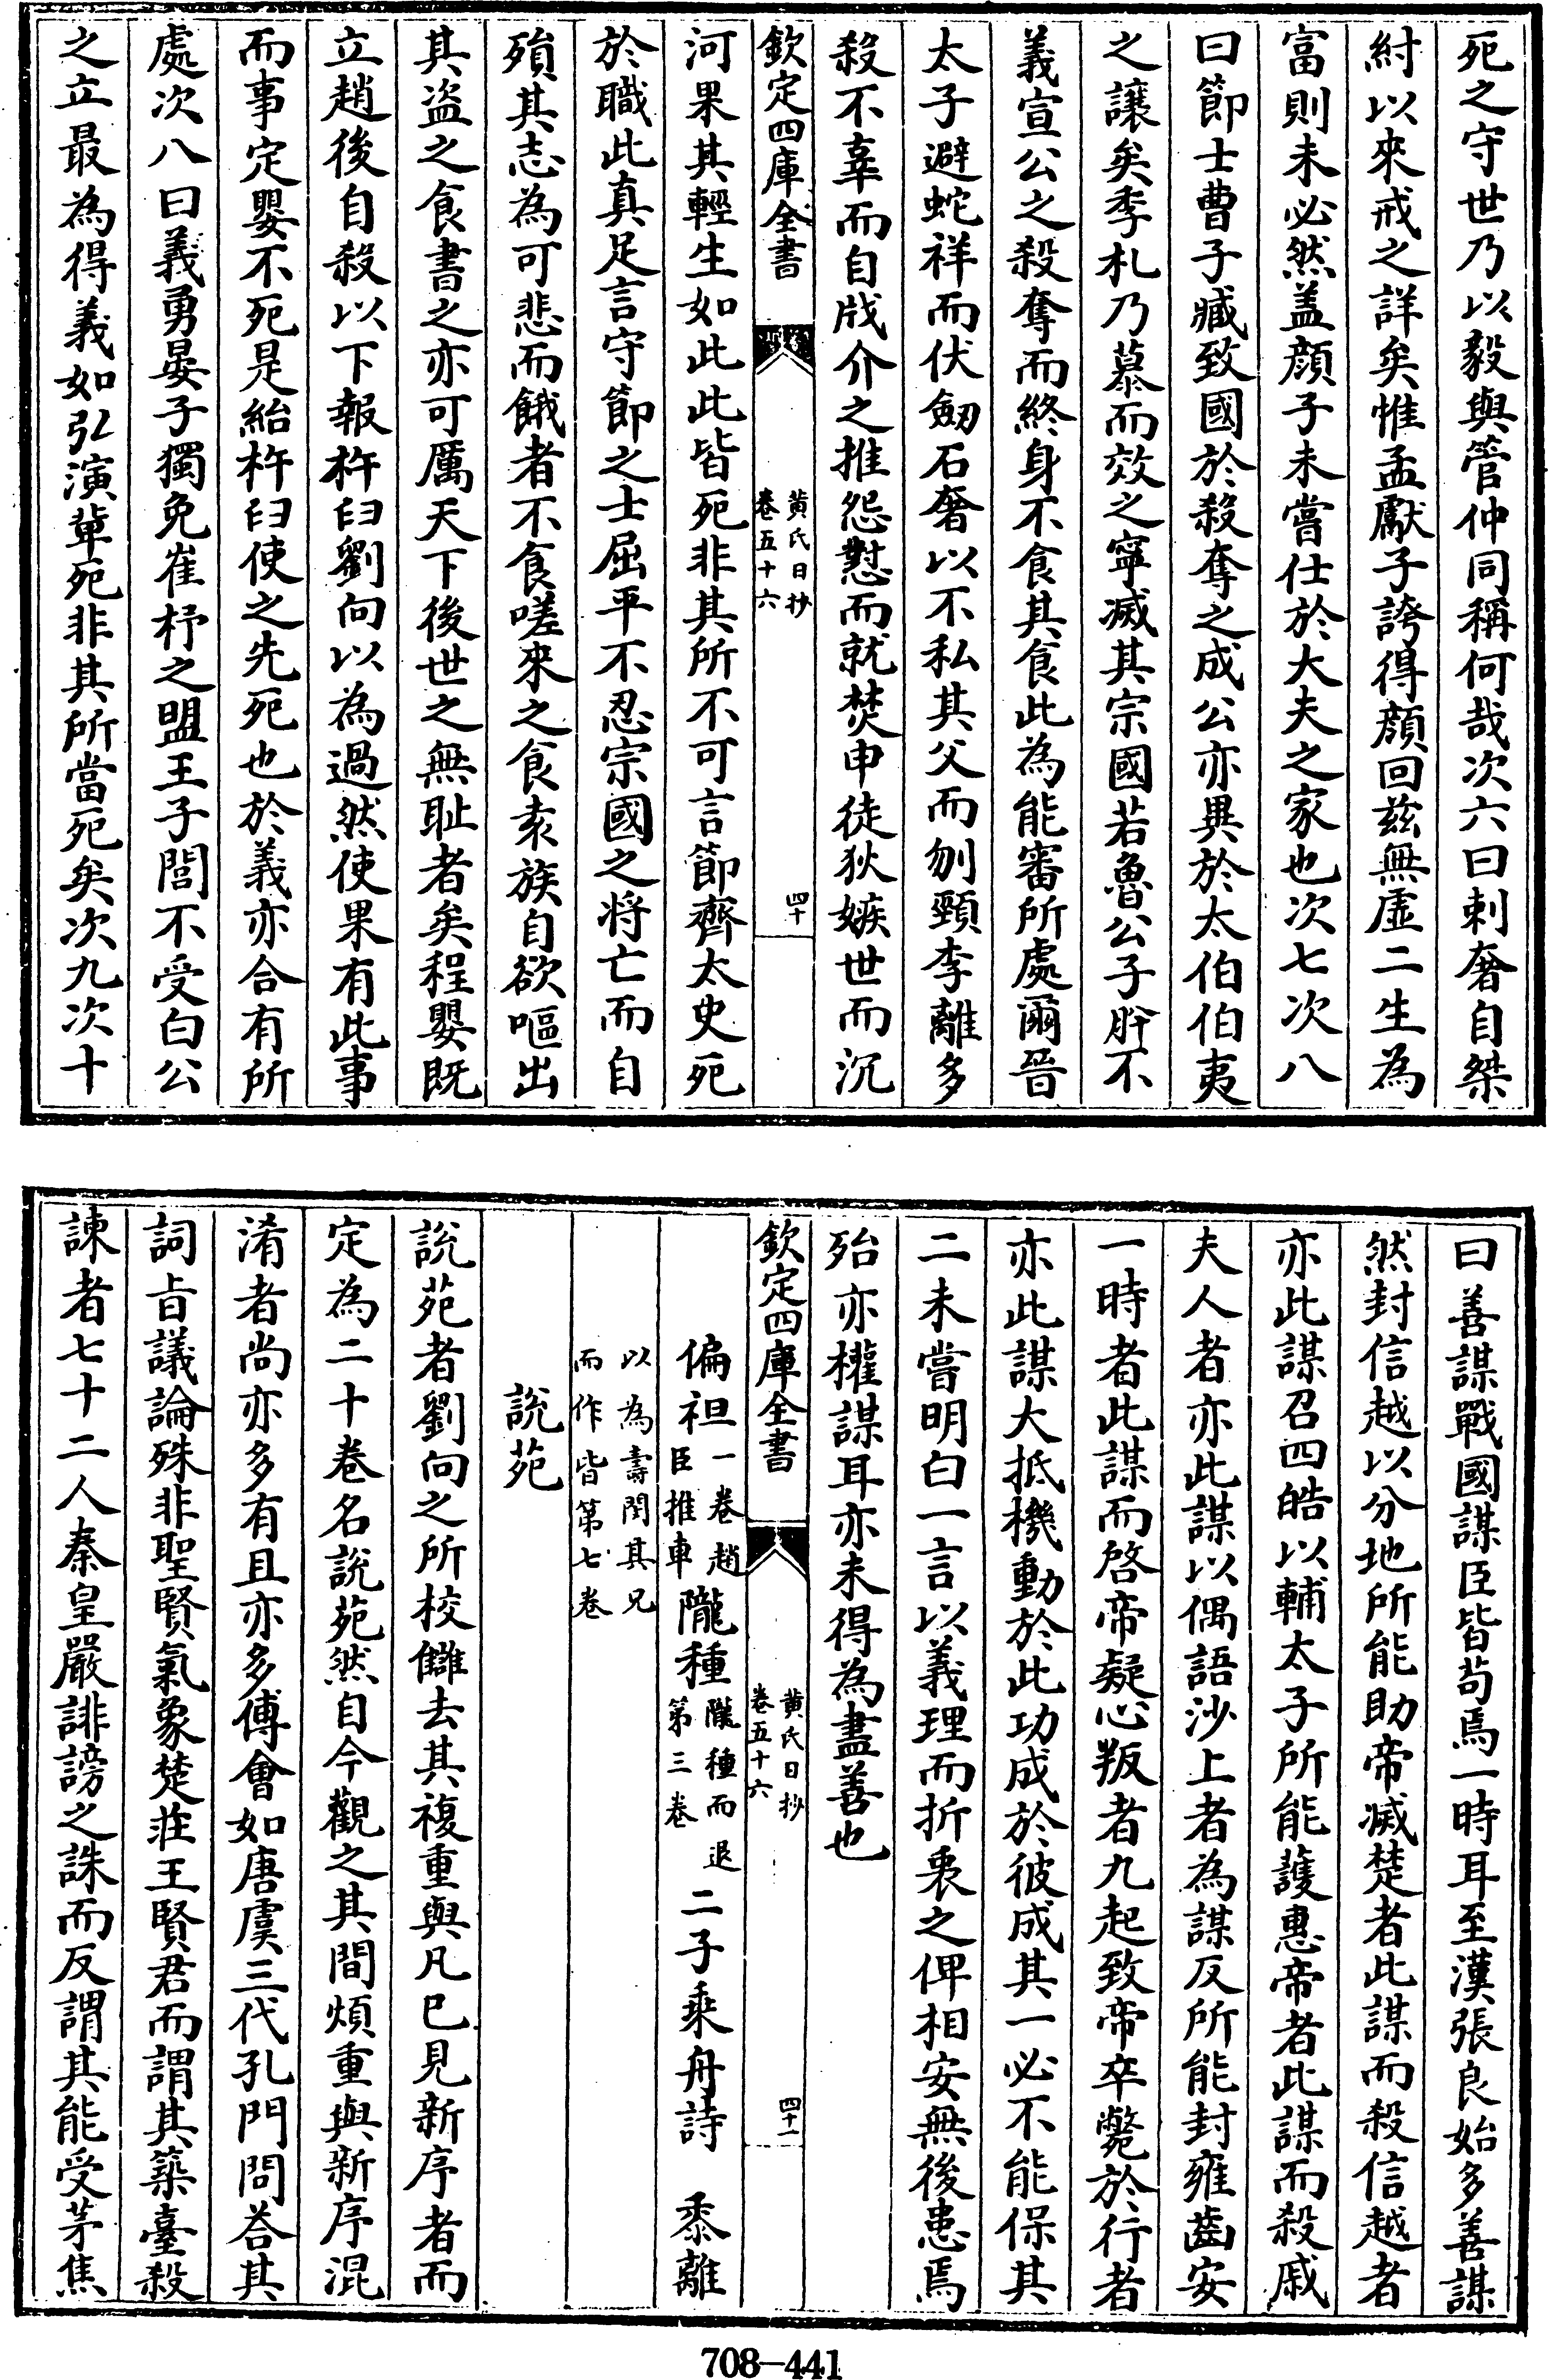 死之守世乃以毅與管仲同稱何哉次六曰刺奢自桀
紂以來戒之詳矣惟孟獻子誇得顔回兹無虚二生為
富則未必然盖顔子未嘗仕於大夫之家也次七次八
曰節士曹子臧致國於殺奪之成公亦異於太伯伯夷
之讓矣季札乃慕而效之寧滅其宗國若魯公子肸不
義宣公之殺奪而終身不食其食此為能審所處爾晉
太子避蛇祥而伏劒石奢以不私其父而刎頸李離多
殺不辜而自戕介之推怨懟而就焚申徒狄嫉世而沉
欽定四庫全書
黄氏日抄
卷五十六
四十
河果其輕生如此此皆死非其所不可言節齊太史死
於職此真足言守節之士屈平不忍宗國之將亡而自
殞其志為可悲而餓者不食嗟來之食袁族自欲嘔出
其盗之食書之亦可厲天下後世之無耻者矣程嬰既
立趙後自殺以下報杵臼劉向以為過然使果有此事
而事定嬰不死是紿杵臼使之先死也於義亦合有所
處次八曰義勇晏子獨免崔杼之盟王子閭不受白公
之立最為得義如弘演軰死非其所當死矣次九次十
曰善謀戰國謀臣皆茍焉一時耳至漢張良始多善謀
然封信越以分地所能助帝滅楚者此謀而殺信越者
亦此謀召四皓以輔太子所能䕶惠帝者此謀而殺戚
夫人者亦此謀以偶語沙上者為謀反所能封雍齒安
一時者此謀而啓帝疑心叛者九起致帝卒斃於行者
亦此謀大抵機動於此功成於彼成其一必不能保其
二未嘗明白一言以義理而折衷之俾相安無後患焉
殆亦權謀耳亦未得為盡善也
欽定四庫全書
黄氏日抄
卷五十六
四十一
偏袒一卷趙臣推車隴種隴種而退第三卷二子乘舟詩 黍離
以為壽閔其兄而作皆第七卷
說苑
說苑者劉向之所校讎去其複重與凡已見新序者而
定為二十卷名說苑然自今觀之其間煩重與新序混
淆者尚亦多有且亦多傅會如唐虞三代孔門問荅其
詞㫖議論殊非聖賢氣象楚莊王賢君而謂其築臺殺
諫者七十二人秦皇嚴誹謗之誅而反謂其能受茅焦
708-441